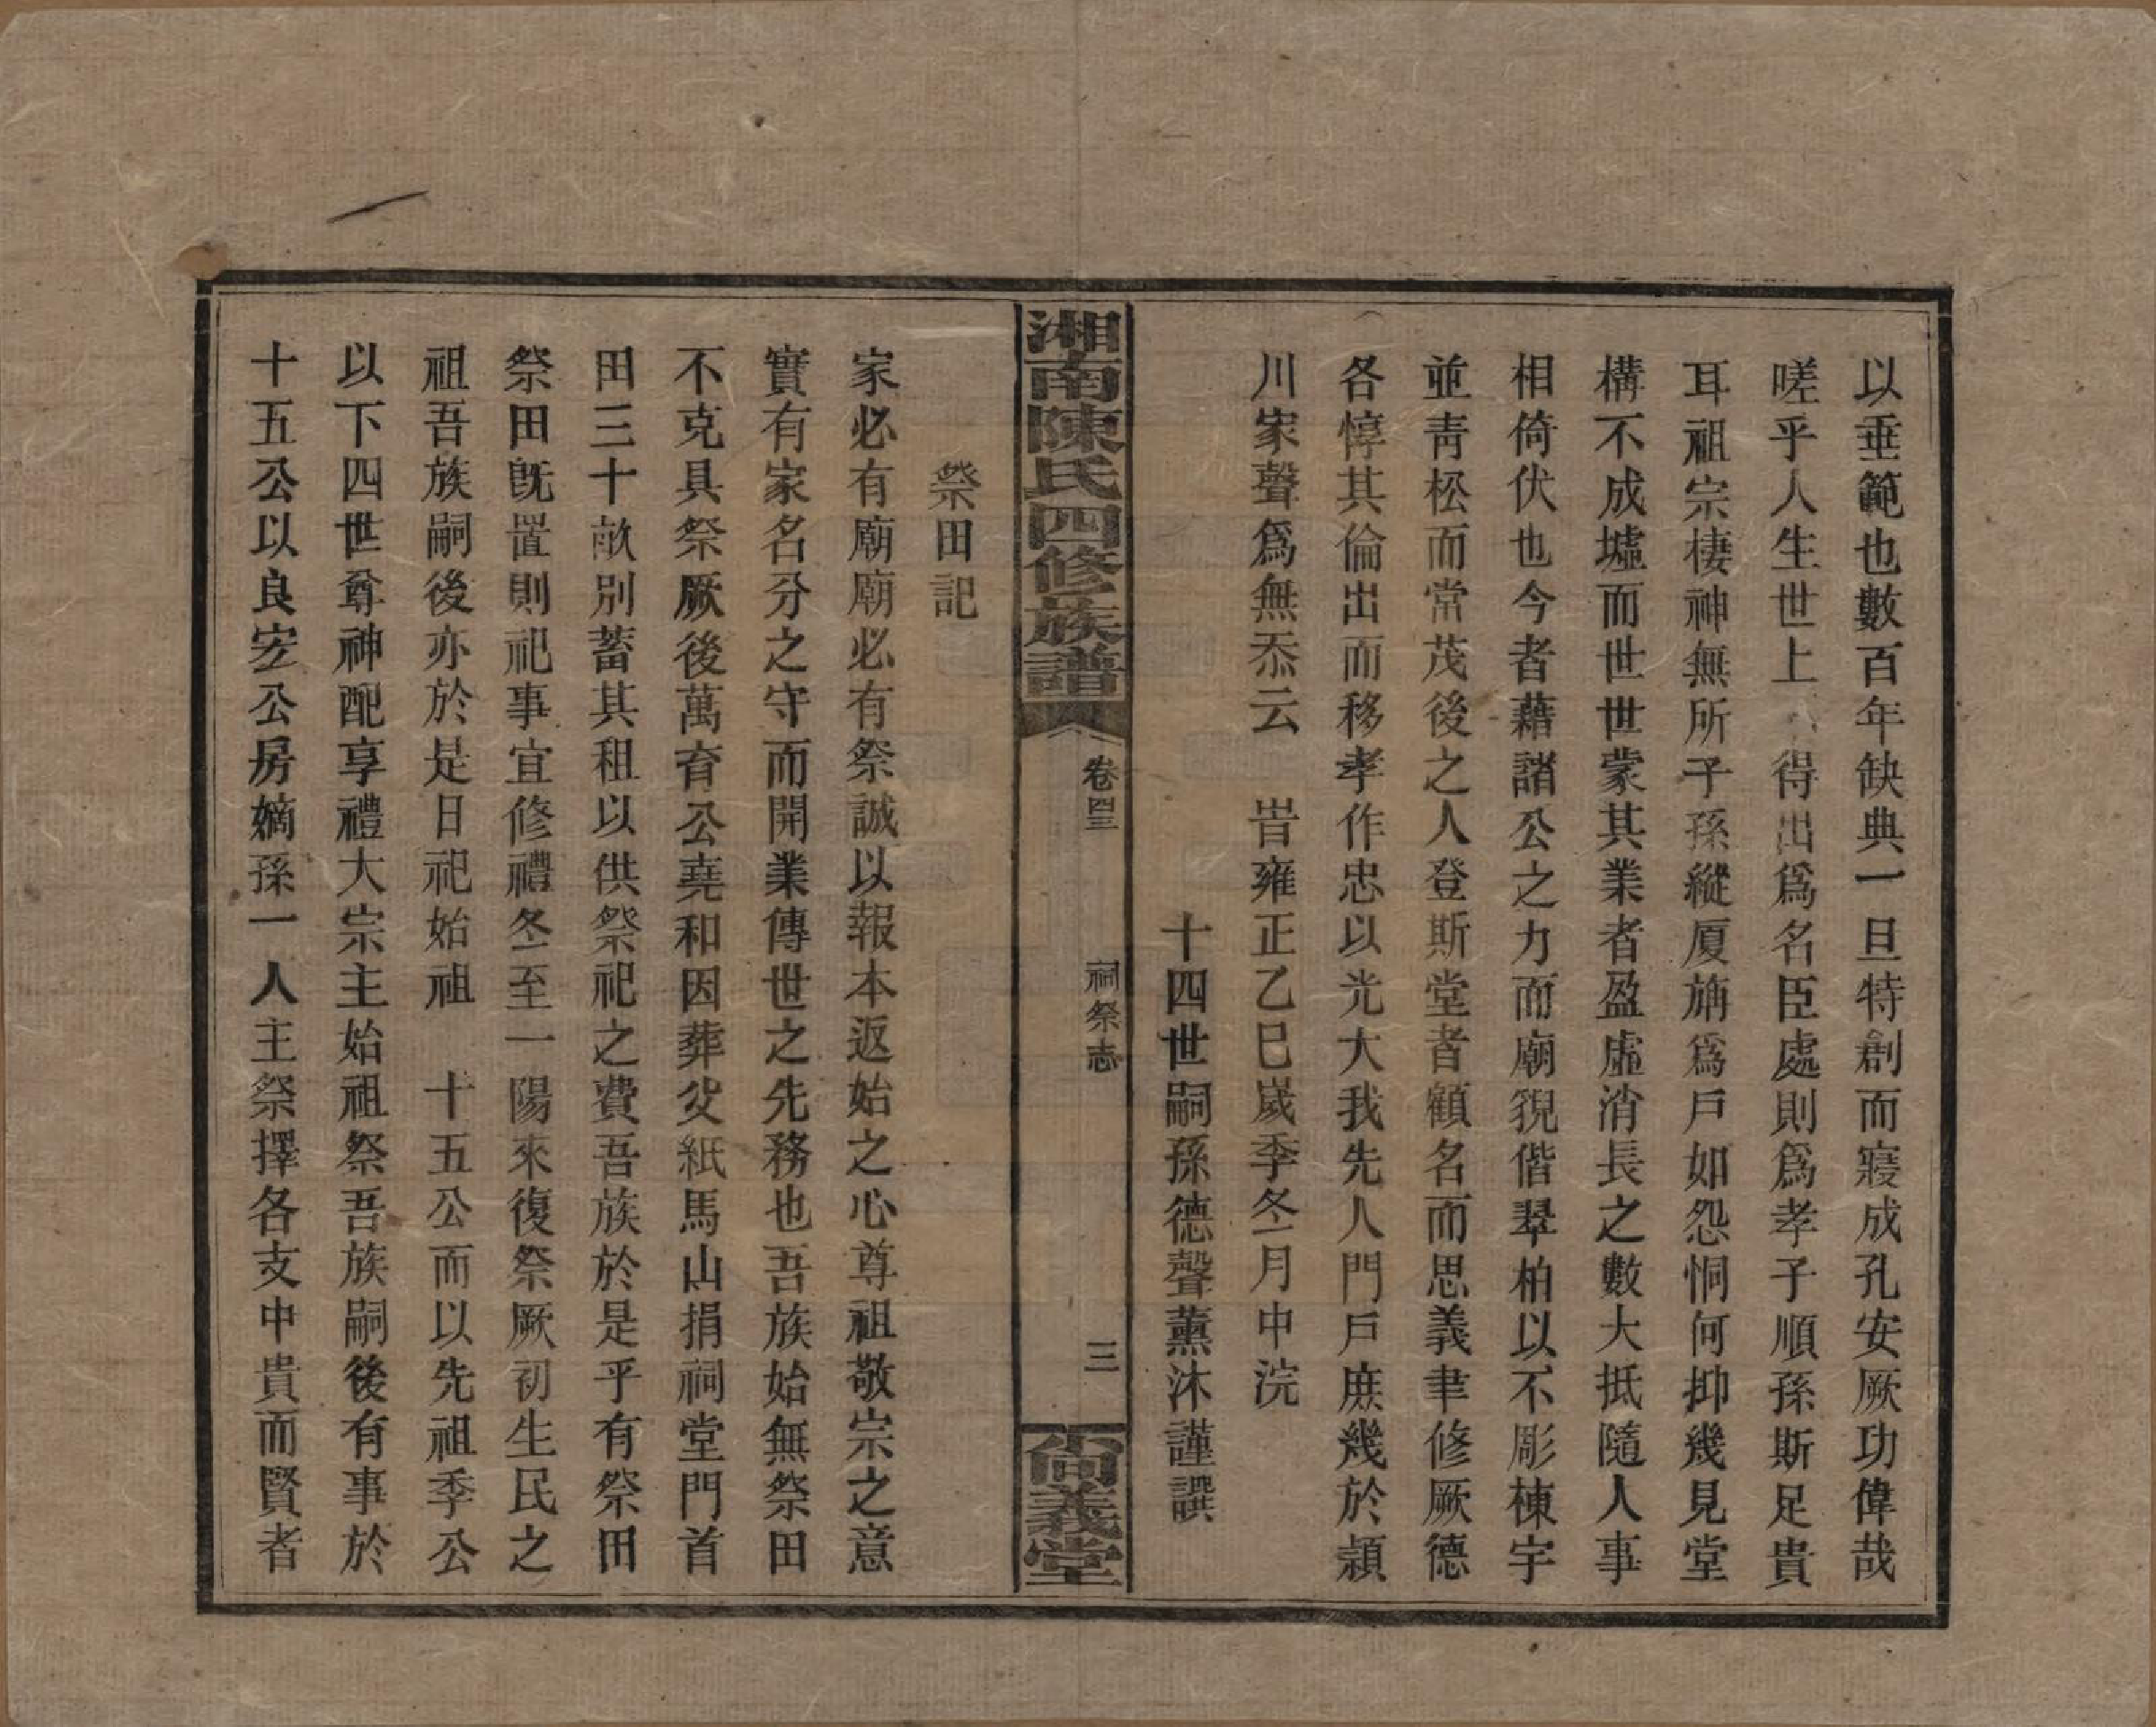 以垂範也數百年缺典一旦特創而寢成孔安厥功偉哉
嗟乎人生世上得出爲名臣處則爲孝子順孫斯足貴
耳祖宗棲神無所子孫縱厦旃爲戶如怨恫何抑幾見堂
構不成墟而世世蒙其業者盈虛消長之數大抵隨人事
相倚伏也今者藉諸公之力而廟貌偕翠柏以不彫棟宇
並靑松而常茂後之人登斯堂者顧名而思義聿修厥德
各惇其倫出而移孝作忠以光大我先人門戶庶幾於潁
川家聲爲無忝云　旹雍正乙巳嵗季冬月中浣
十四世嗣孫德聲薰沐謹譔
湘南陳氏四修族譜　卷四三　祠祭志　三　尙義堂
祭田記
家必有廟廟必有祭誠以報本返始之心尊祖敬宗之意
實有家名分之守而開業傳世之先務也吾族始無祭田
不克具祭厥後萬育公堯和因葬父紙馬山捐祠堂門首
田三十畝別蓄其租以供祭祀之費吾族於是乎有祭田
祭田旣置則祀事宜修禮冬至一陽來復祭厥初生民之
祖吾族嗣後亦於是日祀始祖　十五公而以先祖季公
以下四世尊神配享禮大宗主始祖祭吾族嗣後有事於
十五公以良宏公房嫡孫一人主祭擇各支中貴而賢者